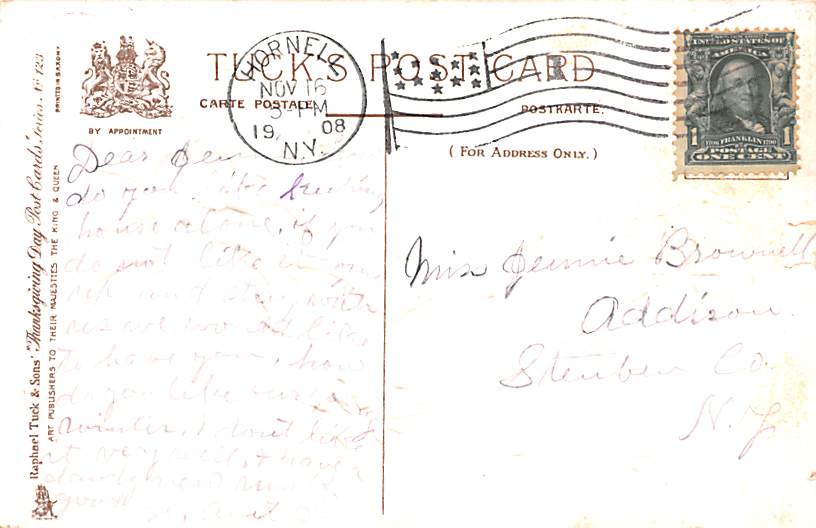 TUCK'S POST CARD
CARTE POSTALE
POSTKARTE.
BY APPOINTMENT
( FOR ADDRESS ONLY. )
HORNELL
NOV 16
5-PM
19 08
N.Y.
UNITED STATES OF
AMERICA
1 FRANKLIN 1
POSTAGE
ONE CENT
Raphael Tuck & Sons' "Thanksgiving Day" Post Cards Series. No 123
PRINTED IN SAXONY
ART PUBLISHERS TO THEIR MAJESTIES THE KING & QUEEN
Dear Jennie
do you like keeping
house alone, if you
do not like it
and stay with
us we would like
to have you, how
do you like our
winter, I dont like
it very well, I have a
dandy new
good
Miss Jennie Brownell
Addison.
Steuben Co.
N. Y